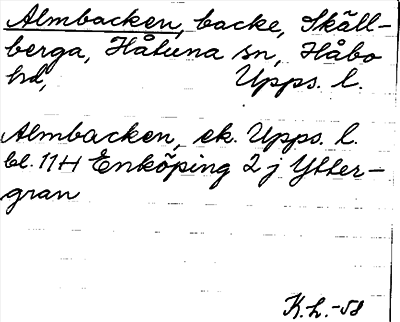 Almbacken, backe, Skäll-
berga, Håtuna sn, Håbo
hd, Upps. l.
Almbacken, ek. Upps. l.
bl. 11H Enköping 2 j Ytter-
gran
K.h.-58